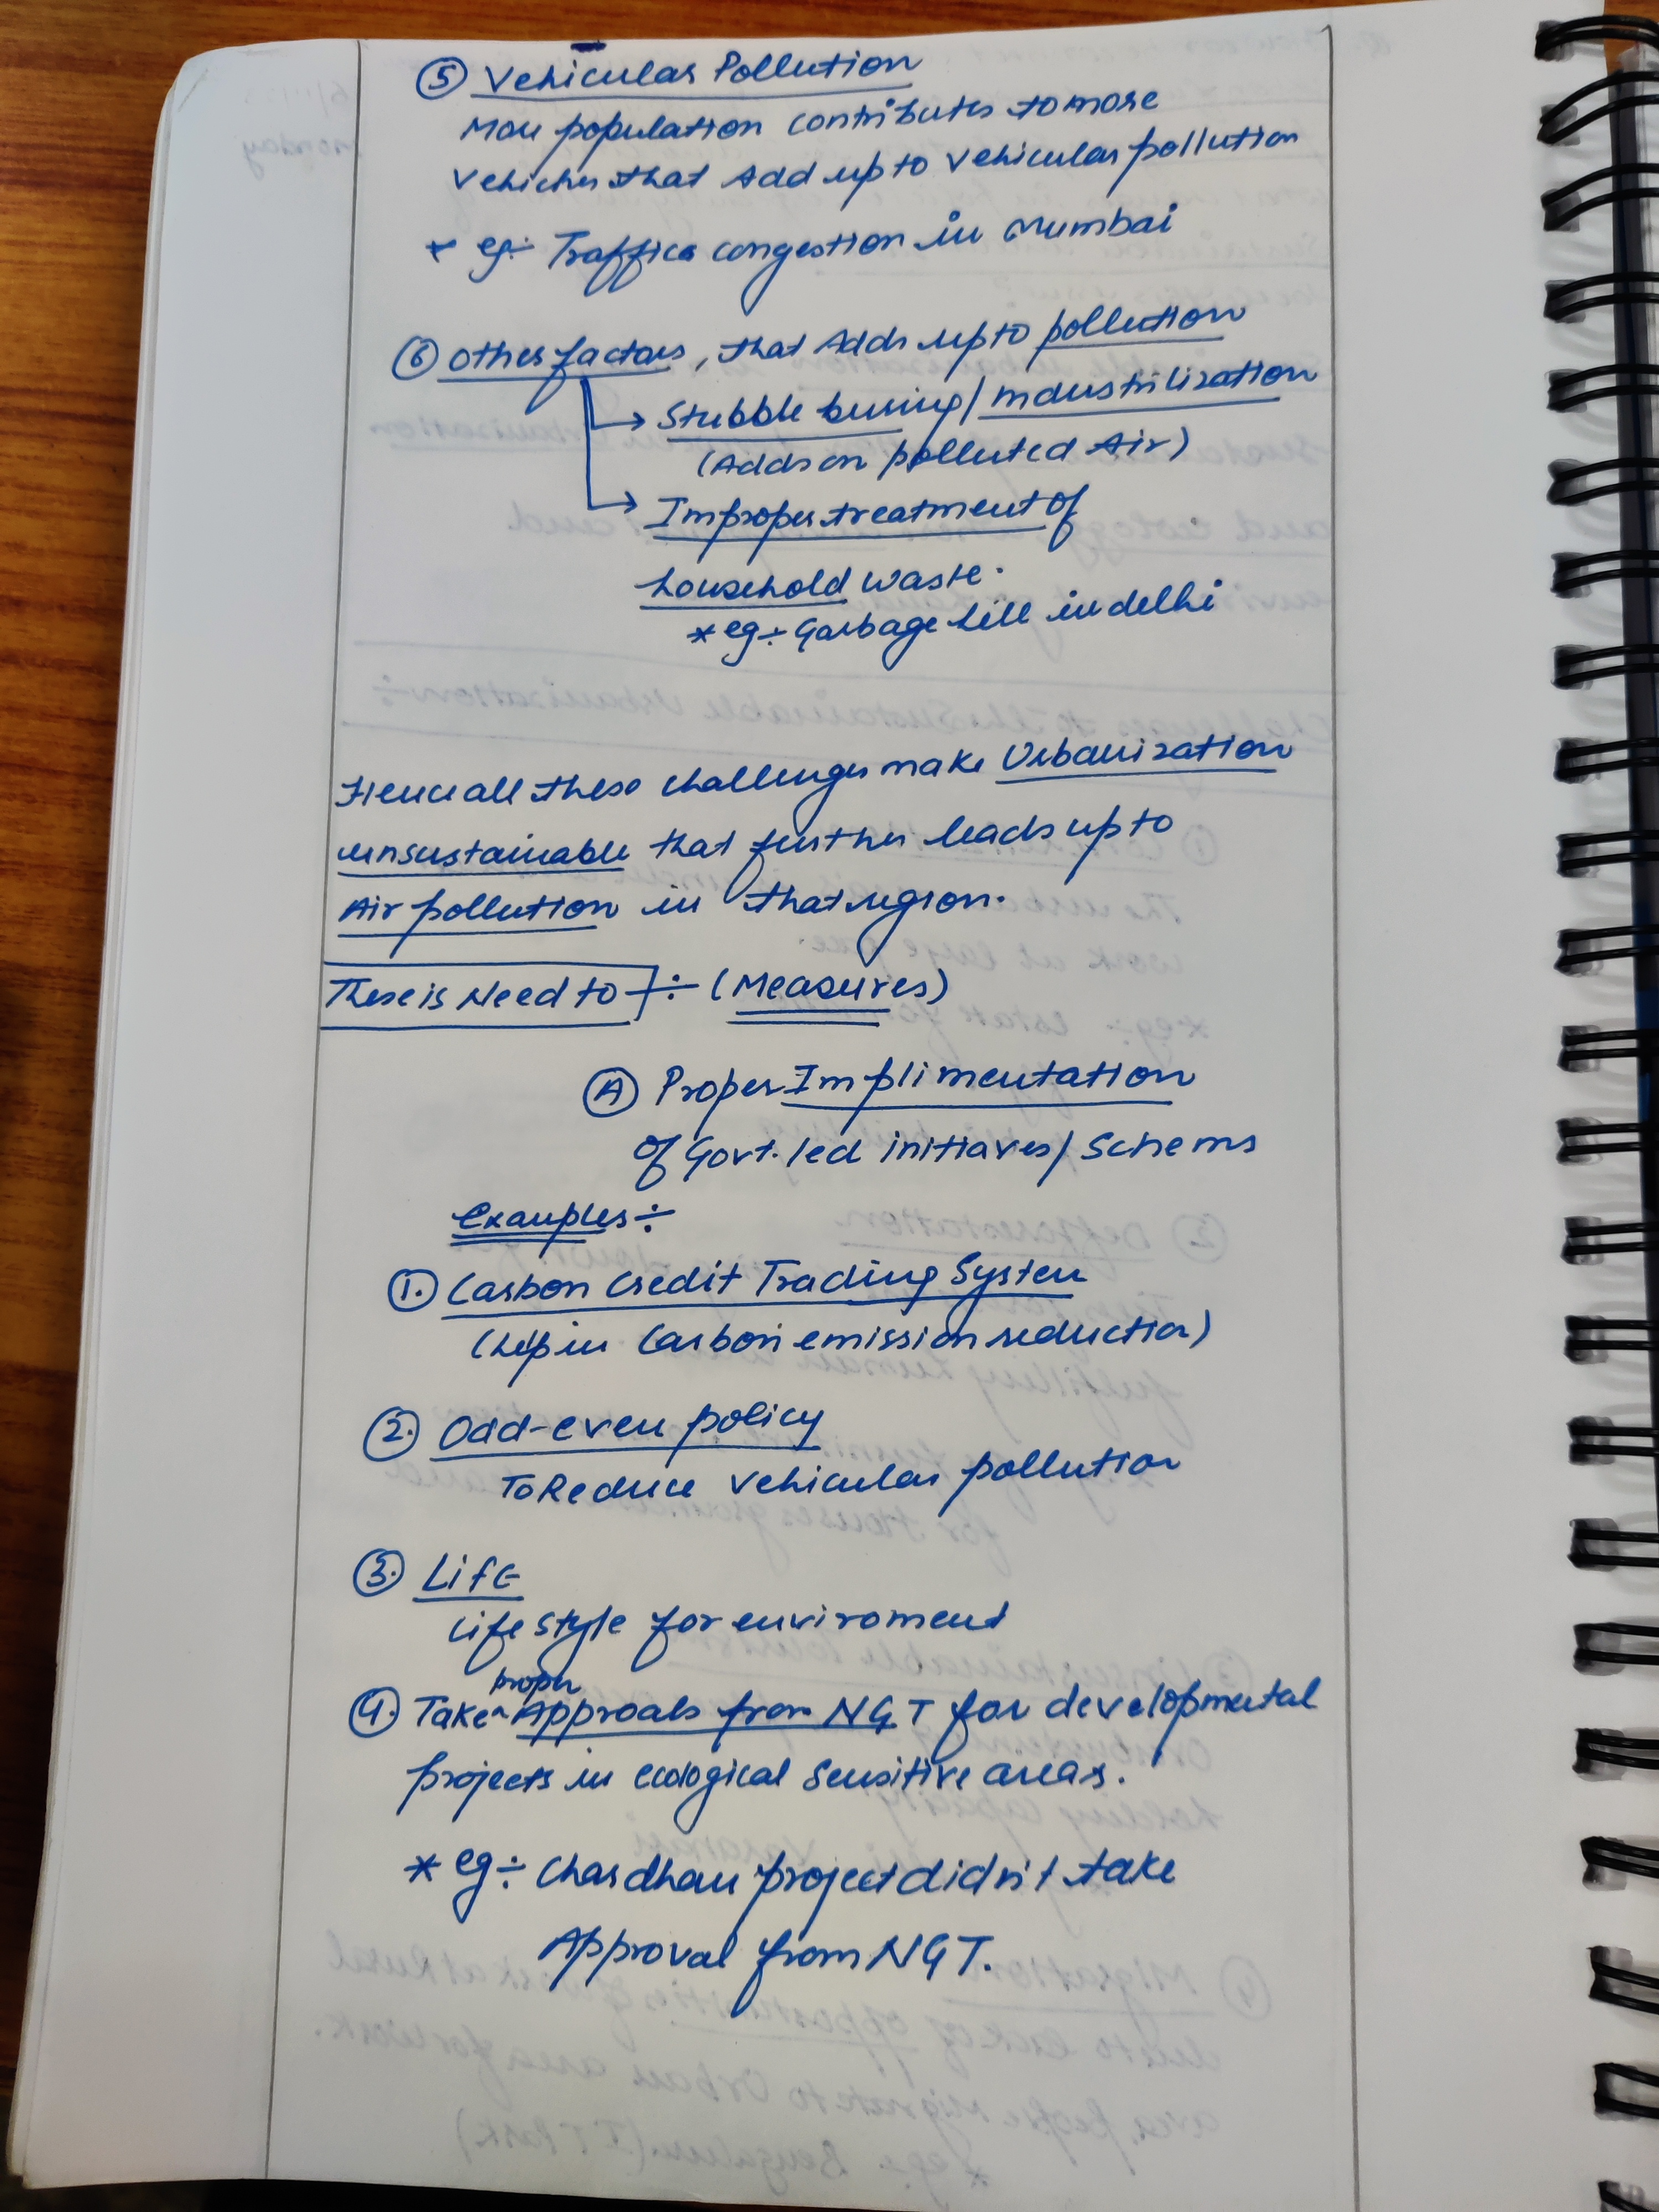 ⑤ Vehicular Pollution
More population contributes to more
vehicles that Add up to vehicular pollution
* eg÷ Traffics congestion in Mumbai
⑥ Other factors, that Adds up to pollution
→ Stubble buring/industrilization
(Adds on polluted Air)
→ Improper treatment of
household waste.
* eg÷ Garbage hill in delhi
Hence all these challenges make Urbanization
unsustainable that further leads up to
Air pollution in that region.
There is Need to ÷ (Measures)
Ⓐ Proper Implimentation
of Govt. led initiaves/Schems
Examples÷
①. Carbon Credit Trading System
(help in Carbon emission reduction)
②. Odd-even policy
To Reduce vehicular pollution
③. LifE
Life style for enviroment
proper
④. Take ^ Approals from NGT for developmental
projects in ecological sensitive areas.
* eg÷ Chardham project didn't take
Approval from NGT.